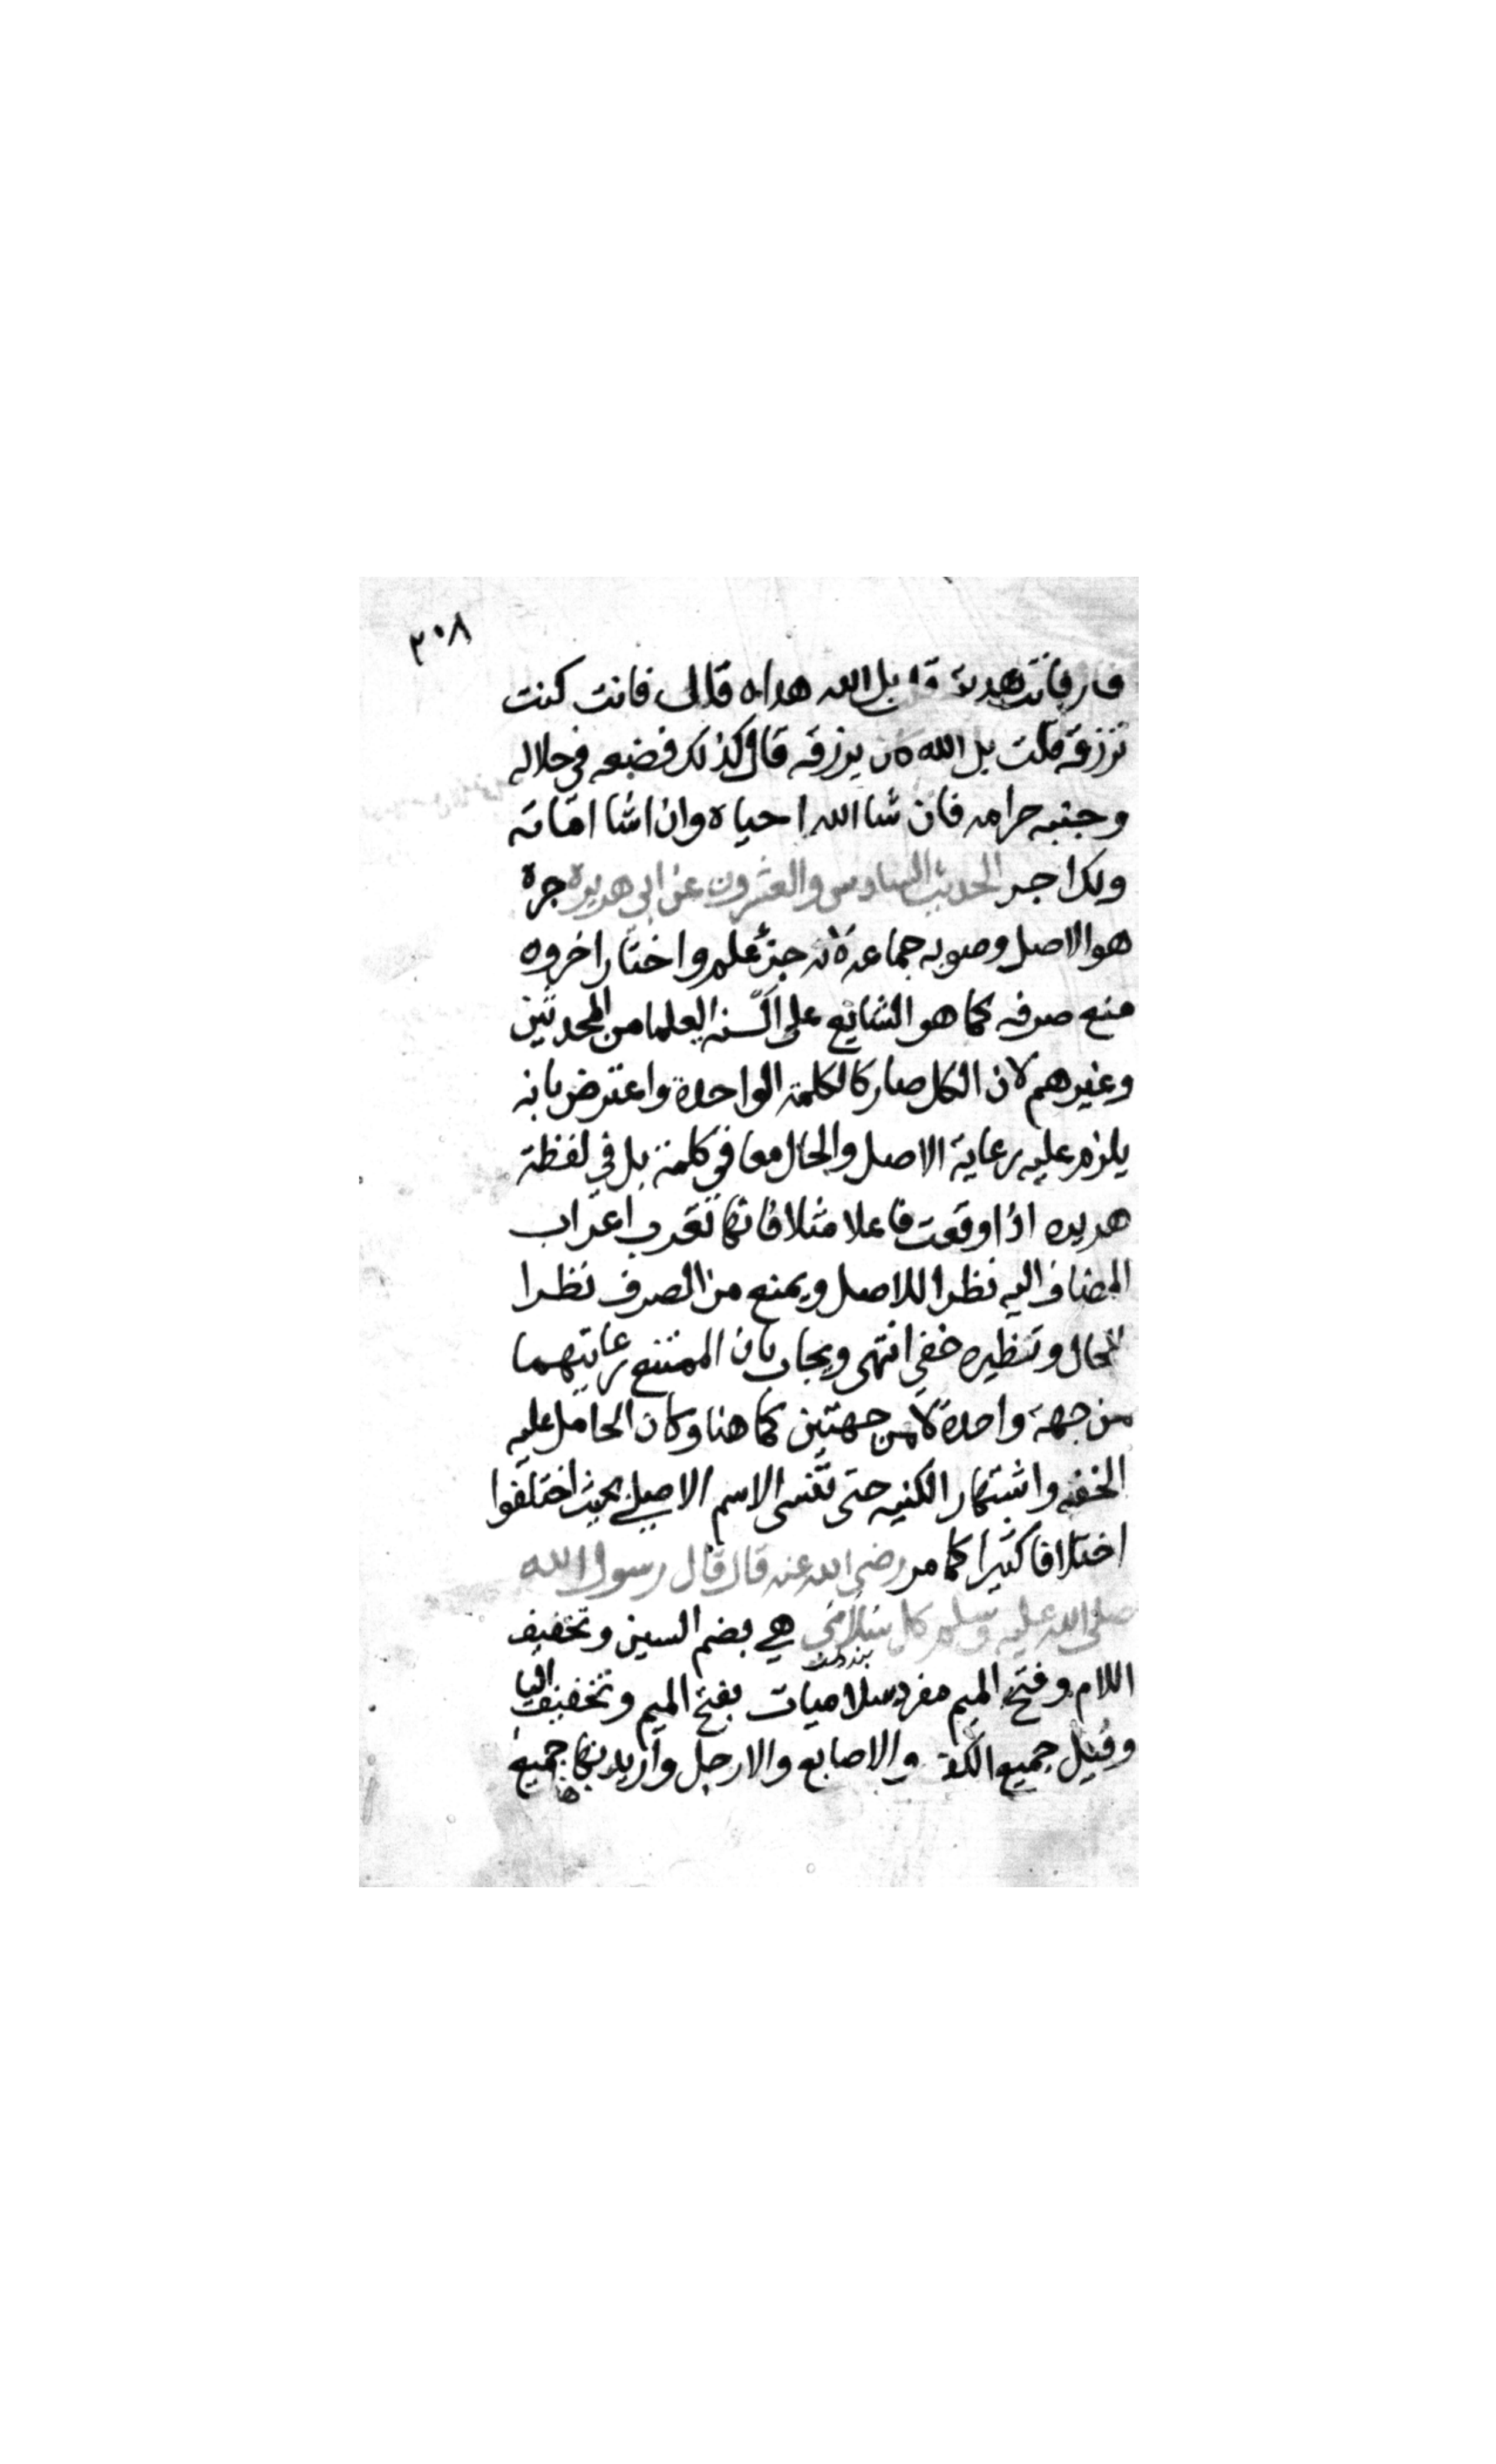 ٣٠٨
قال فانت هديته قلت بل الله هداه قال فانت كنت
ترزقه قلت بل الله كان يرزقه قال كذلك فضعه في حلاله
وجنبه حرامه فان شا الله احياه وان شا اماته
ولك اجر الحديث السادس والعشرون عن ابي هريرة جره
هو الاصل وصوبه جماعة لانه جزء علم واختار اخرون
منع صرفه كما هو الشايع على السنة العلما من المحدثين
وغيرهم لان الكل صار كالكلمة الواحدة واعترض بانه
يلزم عليه رعاية الاصل والحال معا في كلمة بل في لفظة
هريره اذا وقعت فاعلا مثلا فانها تعرب اعراب
المضاف اليه نظرا للاصل ويمنع من الصرف نظرا
للحال وتنظيره خفي انتهى ويجاب بان الممتنع رعايتهما
من جهة واحدة لا من جهتين كما هنا وكان الحامل عليه
الخفه واشتهار الكنيه حتى تنسى الاسم الاصلي بحيث اختلفوا
اختلافا كثيرا كما مر رضي الله عنه قال قال رسول الله
صلى الله عليه وسلم كل سلامى هي بضم السين وتخفيف
اللام وفتح الميم مفرد سلاميات بفتح الميم وتخفيف اليا
وقيل جميع الكف والاصابع والارجل واريد بها جميع